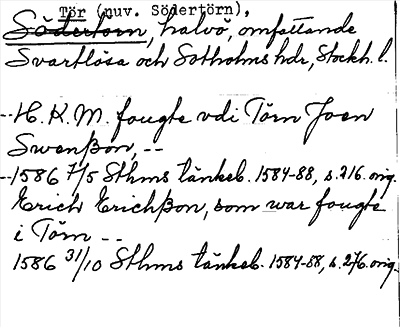 Tör (nuv. Södertörn),
Södertörn, halvö, omfattande
Svartlösa och Sotholms hdr, Stockh. l.
--H. K. M. fougte vdi Törn Joen
Swenßon, --
--1586 7/5 Sthms tänkeb. 1584-88, s. 216. orig.
Erich Erichßon, som war fougte
i Törn --
1586 31/10 Sthms tänkeb. 1584-88, s. 276. orig.